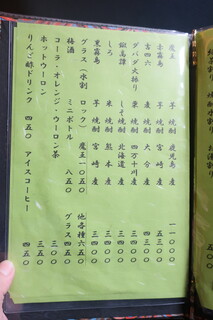 魔王 芋焼酎 鹿児島産 一一〇〇
赤霧島 芋焼酎 宮崎産 四五〇
吉四六 麦焼酎 大分産 四三〇
ダバダ火振り 栗焼酎 四万十川産 五五〇
鍛高譚 しそ焼酎 北海道産 四〇〇
しろ 米焼酎 熊本産 三五〇
黒霧島 芋焼酎 宮崎産 三五〇
グラス（水割 ロック）魔王一〇五〇 他各種六五〇
梅酒 ミニボトル 八五〇 グラス四五〇
コーラ・オレンジ・ウーロン茶 三〇〇
ホットウーロン 三五〇
りんご酢ドリンク 四五〇 アイスコーヒー 四五〇